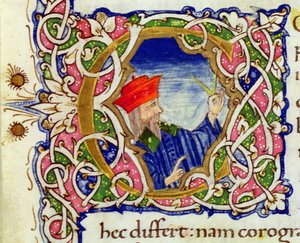 hec differt: nam corogra